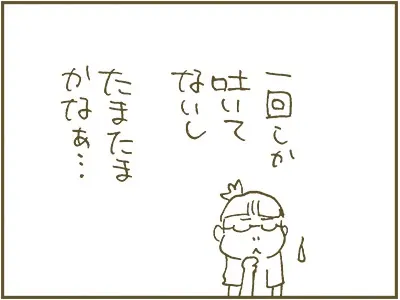 一回しか
吐いて
ないし
たまたま
かなぁ…